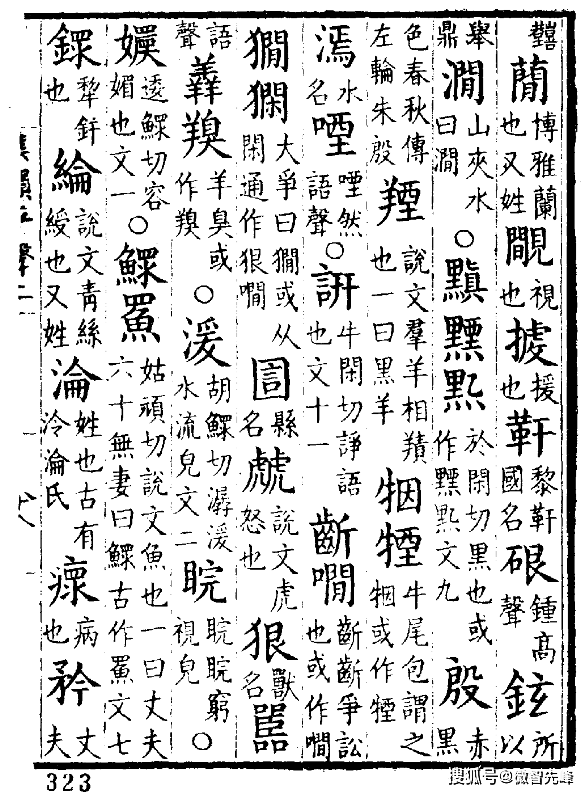 蕳博雅蘭也又姓覸視也㨿援也靬黎靬國名硍鍾高聲鉉所以
舉鼎澗山夾水曰澗○黰黫䵤於閑切黑也或作黫䵤文九殷赤黑
色春秋傳左輪朱殷羥說文羣羊相羵也一曰黑羊牰㹙牛尾包謂之牰或作㹙
漹水名㖶㖶然語聲○訮牛閑切諍語也文十一齗㘖齗齗爭訟也或作㘖
犬爭曰或从閑通作狠㘖訔縣名虤說文虎怒也狠獸名嚚
語聲羊臭或作○湲胡鰥切潺湲水流皃文二睆睆睆窮視皃○
嬽逶鰥切容媚也文一○鰥䍡姑頑切說文魚也一曰丈夫六十無妻曰鰥古作䍡文七
鏍犂錧也綸說文青絲綬也又姓淪姓也古有泠淪氏瘝病也矜丈夫
323
搜狐号@微智先峰